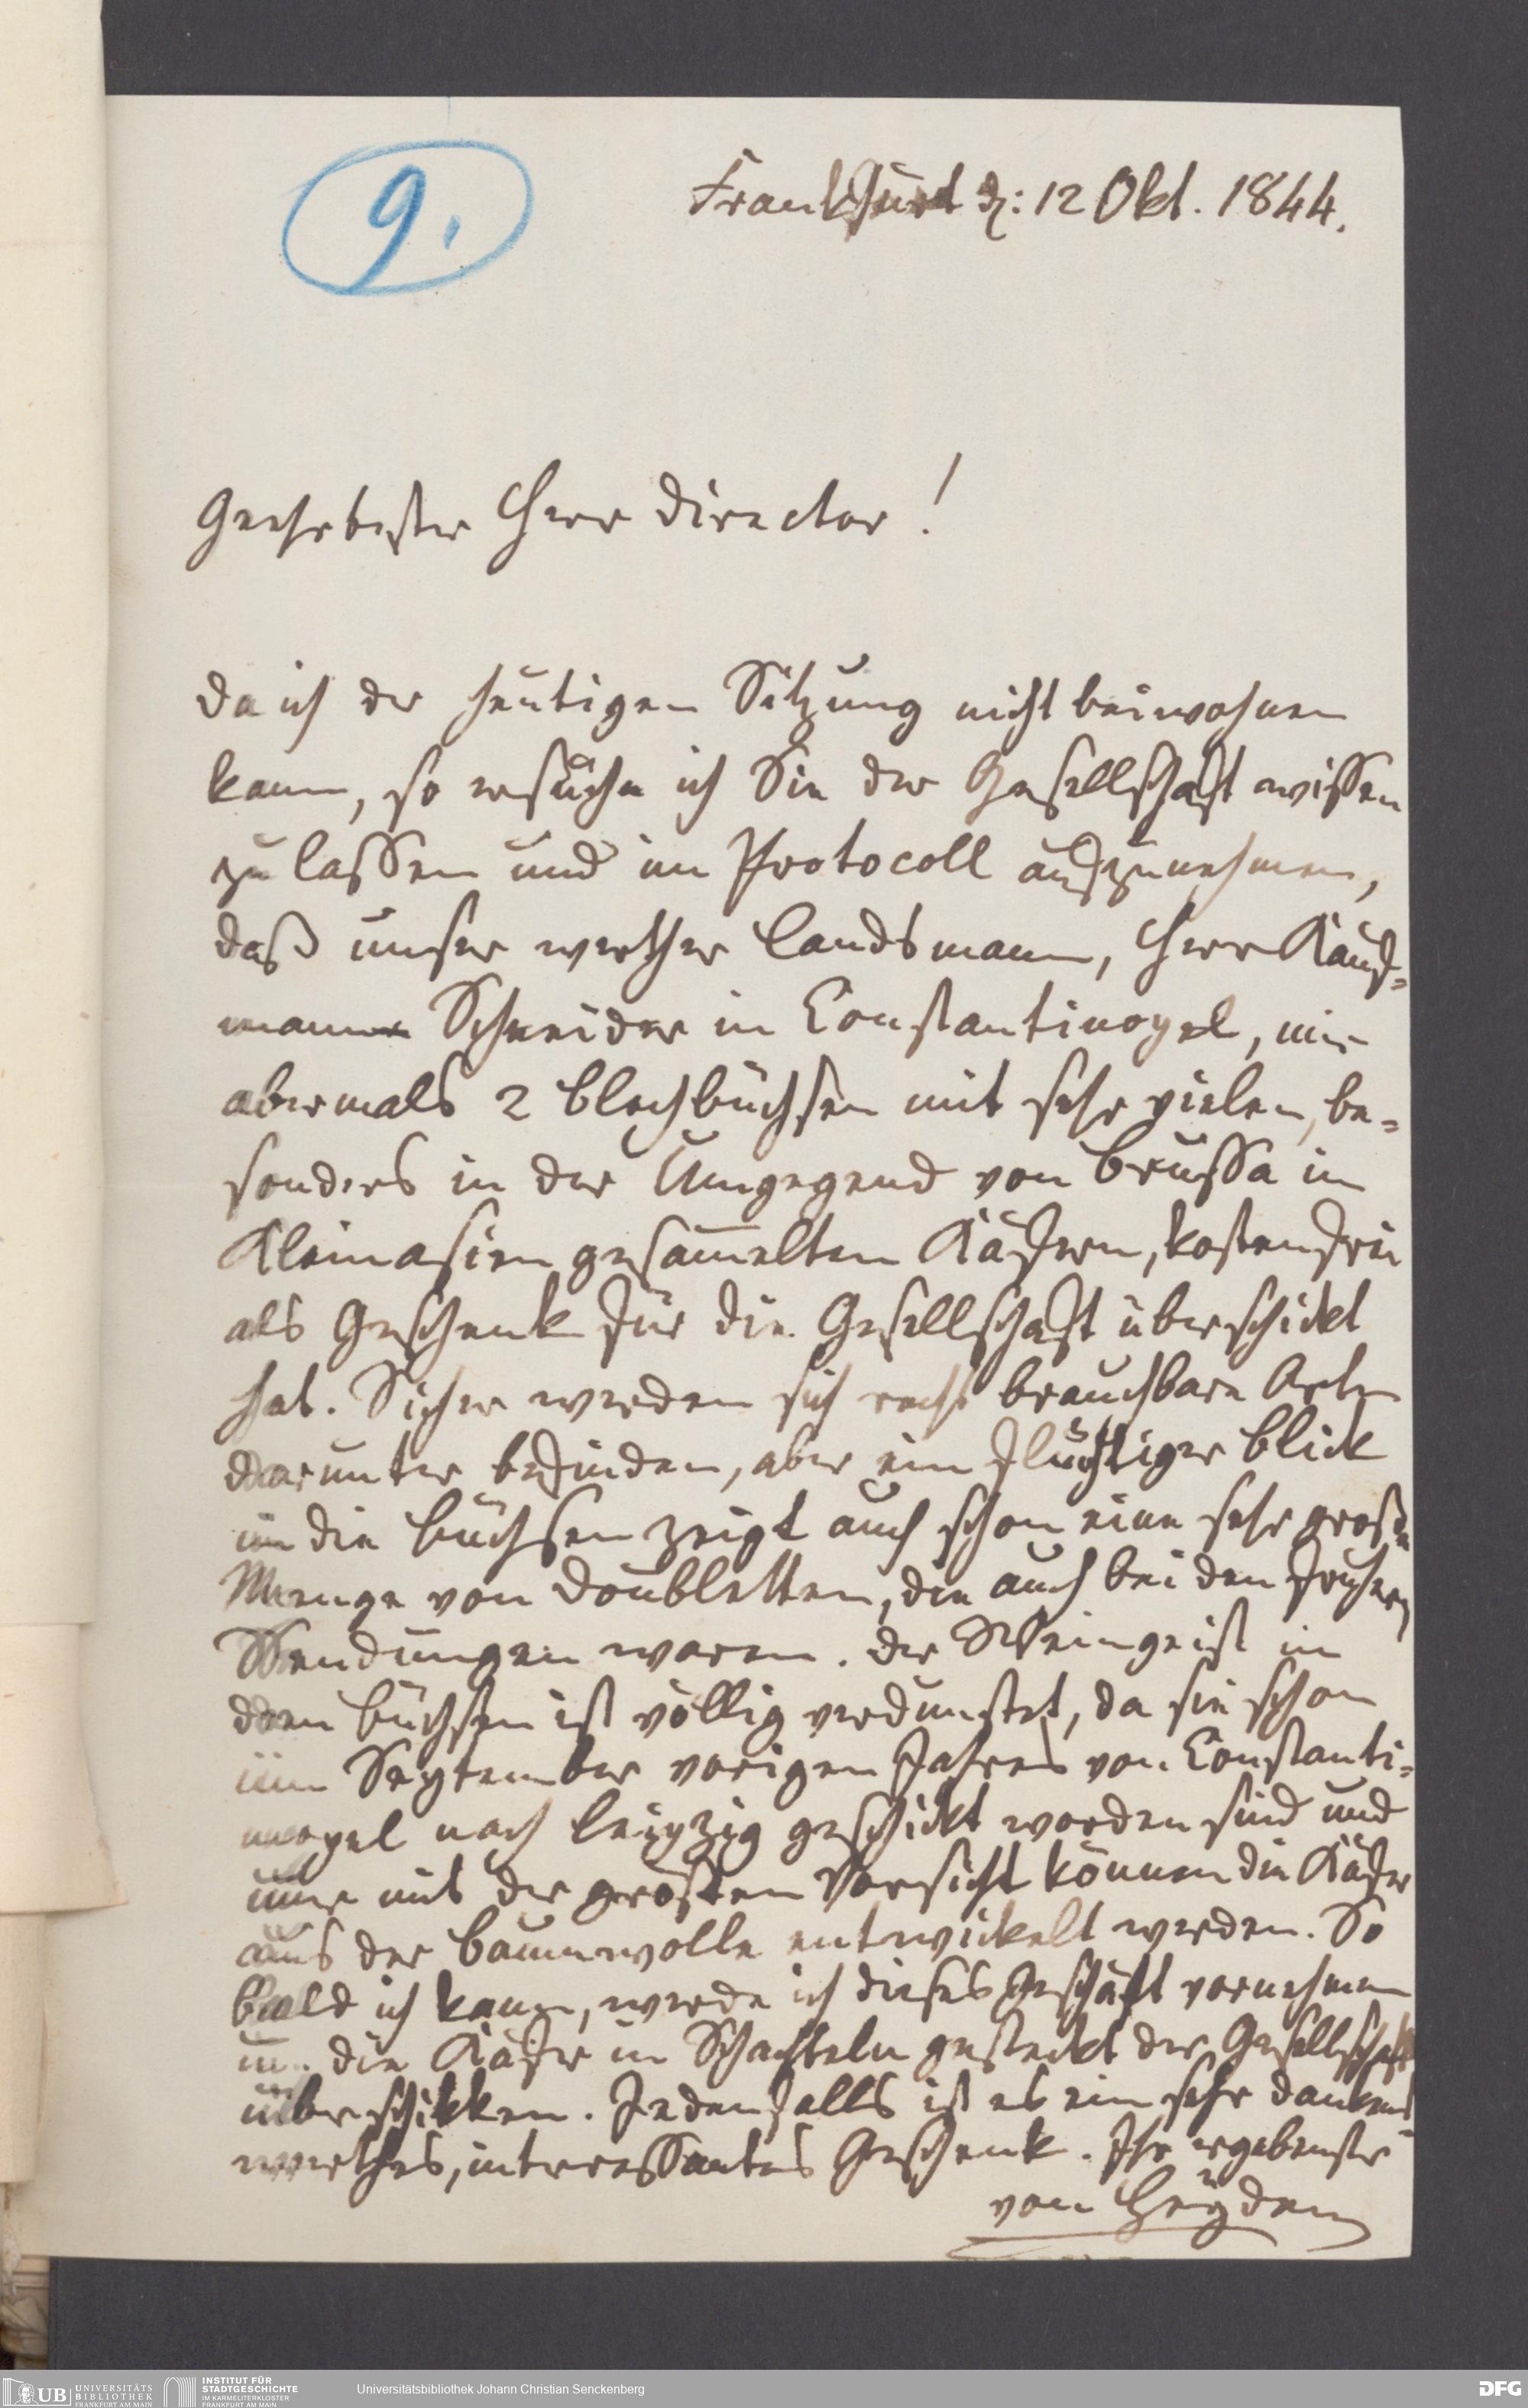 9.
Frankfurt d: 12 Okt. 1844.
Geehrtester Herr Director!
Da ich der heutigen Sitzung nicht beiwohnen
kann, so ersuche ich Sie der Gesellschaft wissen
zu lassen und im Protocoll aufzunehmen,
daß unser werther Landsmann, Herr Kauf=
mann Schneider in Constantinopel, mir
abermals 2 Blechbüchsen mit sehr vielen, be=
sonders in der Umgegend von Brussa in
Kleinasien gesam̅elten Käfern, kostenfrei
als Geschenk für die Gesellschaft überschickt
hat. Sicher werden sich recht brauchbare Arten
darunter befinden, aber ein flüchtiger Blick
in die Büchsen zeigt auch schon eine sehr große
Menge von Doubletten, die auch bei den frühern
Sendungen waren. Der Weingeist in
den Büchsen ist völlig verdunstet, da sie schon
im September vorigen Jahres von Constanti=
nopel nach Leipzig geschickt worden sind und
nur mit der grösten Vorsicht können die Käfer
aus der Baumwolle entwickelt werden. So
bald ich kann, werde ich dieses Geschäft vornehmen
u. die Käfer in Schachteln gesteckt der Gesellschaft
überschikken. Jedenfalls ist es ein sehr dankens
werthes, interessantes Geschenk. Ihr ergebenster
von Heyden
UB UNIVERSITÄTS
BIBLIOTHEK
FRANKFURT AM MAIN
INSTITUT FÜR
STADTGESCHICHTE
IM KARMELITERKLOSTER
FRANKFURT AM MAIN
Universitätsbibliothek Johann Christian Senckenberg
DFG